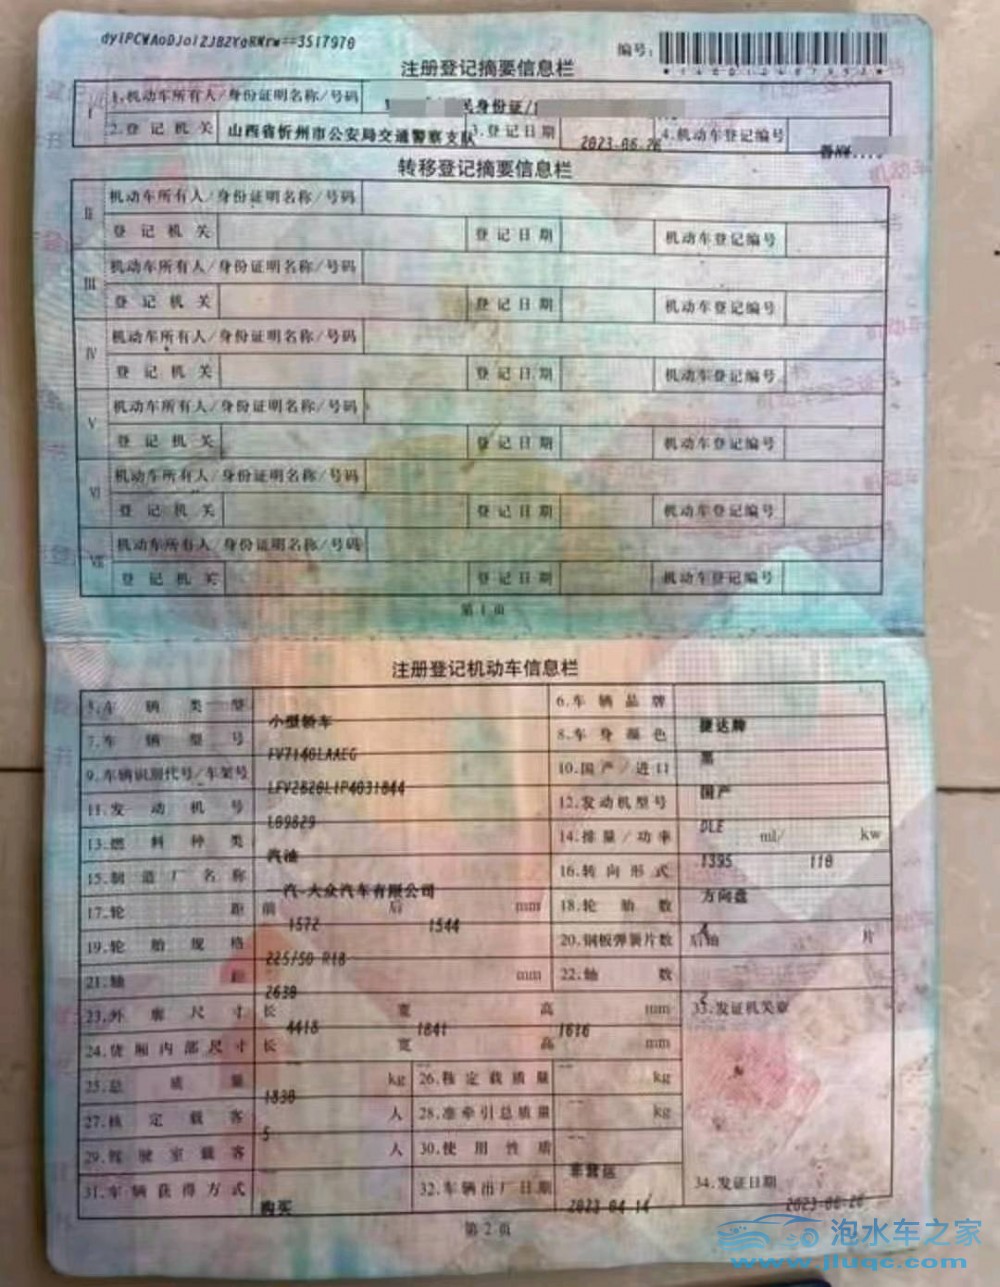 dylPCWAoDJol2JB2YgRNrw==3517970
编号:
注册登记摘要信息栏
I 1.机动车所有人/身份证明名称/号码 民身份证/
2.登记机关 山西省忻州市公安局交通警察支队 3.登记日期 2023-06-26 4.机动车登记编号
转移登记摘要信息栏
II 机动车所有人/身份证明名称/号码
登记机关 登记日期 机动车登记编号
III 机动车所有人/身份证明名称/号码
登记机关 登记日期 机动车登记编号
IV 机动车所有人/身份证明名称/号码
登记机关 登记日期 机动车登记编号
V 机动车所有人/身份证明名称/号码
登记机关 登记日期 机动车登记编号
VI 机动车所有人/身份证明名称/号码
登记机关 登记日期 机动车登记编号
VII 机动车所有人/身份证明名称/号码
登记机关 登记日期 机动车登记编号
第1页
注册登记机动车信息栏
5.车辆类型 小型轿车 6.车辆品牌 捷达牌
7.车辆型号 FV7146LAAEG 8.车身颜色 黑
9.车辆识别代号/车架号 LFV2B20L1P4031044 10.国产/进口 国产
11.发动机号 L09829 12.发动机型号 DLE
13.燃料种类 汽油 14.排量/功率 1395 ml/ 110 kw
15.制造厂名称 一汽-大众汽车有限公司 16.转向形式 方向盘
17.轮距 前 1572 后 1544 mm 18.轮胎数 4
19.轮胎规格 225/50 R18 20.钢板弹簧片数 后轴 片
21.轴距 2630 mm 22.轴数 2
23.外廓尺寸 长 4418 宽 1841 高 1616 mm 33.发证机关章
24.货厢内部尺寸 长 -- 宽 -- 高 -- mm
25.总质量 1830 kg 26.核定载质量 -- kg
27.核定载客 5 人 28.准牵引总质量 -- kg
29.驾驶室载客 -- 人 30.使用性质 非营运
31.车辆获得方式 购买 32.车辆出厂日期 2023-04-14 34.发证日期 2023-06-26
第2页
泡水车之家
www.jluqc.com